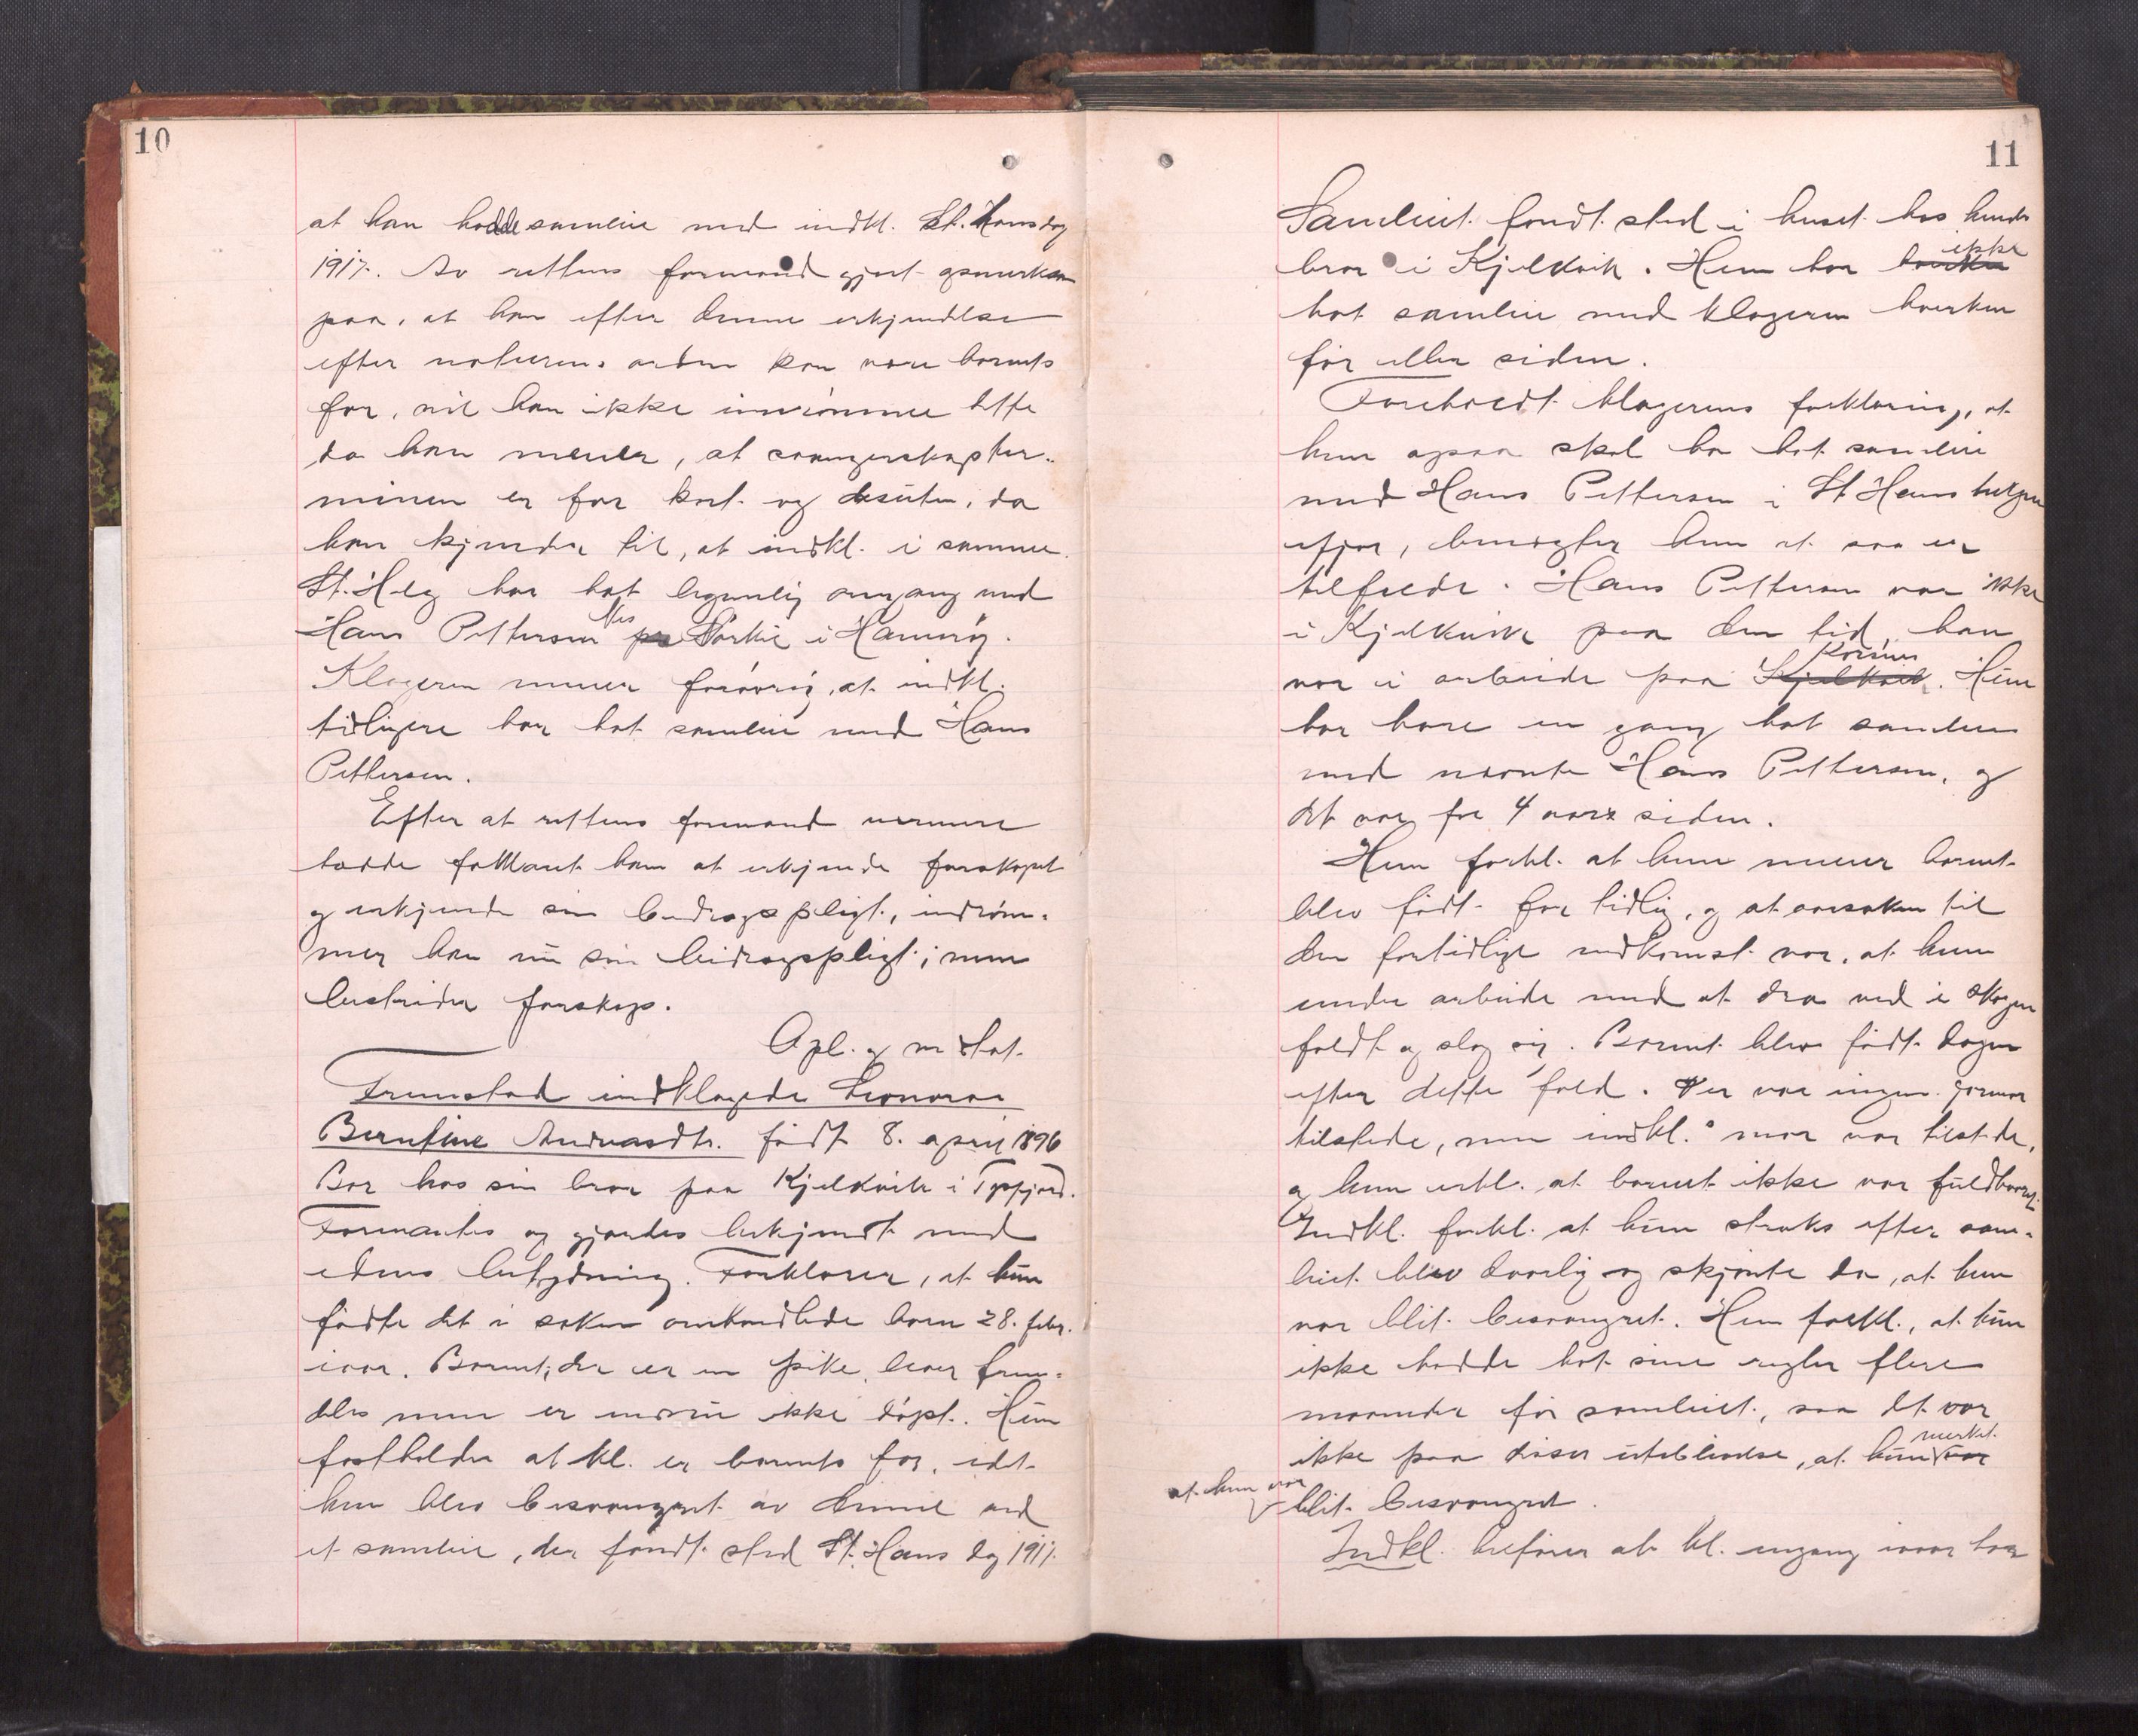 10
at han hadde samleie med indkl. St. Hansdag
1917. Av rettens formand gjort opmerksom
paa, at han efter denne erkjendelse
efter naturens orden kan være barnets
far, vil han ikke inrømme dette
da han mener, at svangerskapster-
minen er for kort og desuten, da
han kjender til, at indkl. i samme
St. Helg har hat legemlig omgang med
Hans Pettersen Nes i Hamarøy.
Klageren mener forøvrig, at indkl.
tidligere har hat samleie med Hans
Pettersen.
Efter at rettens formand nærmere
hadde forklaret ham at erkjende farskapet
og erkjende sin bidragspligt, indrøm-
mer han nu sin bidragspligt; men
bestrider farskap.
Opl. og vedtat.
Fremstod indklagede Leonora
Berntine Andreasdtr. født 8. april 1896
Bor hos sin bror paa Kjelkvik i Tysfjord.
Formantes og gjordes bekjendt med
edens betydning. Forklarer, at hun
fødte det i saken omhandlede barn 28. febr.
iaar. Barnet, der er en pike, lever frem-
deles men er endnu ikke døpt. Hun
fastholder at kl. er barnets far, idet
hun blev besvangret av denne ved
et samleie, der fandt sted St. Hans dag 1917.
11
Samleiet fandt sted i huset hos hendes
bror i Kjelkvik. Hun har ikke
hat samleie med klageren hverken
før eller siden.
Foreholdt klagerens forklaring, at
hun ogsaa skal ha hat samleie
med Hans Pettersen i St Hans helgen
ifjor, benegter hun at saa er
tilfælde. Hans Pettersen var ikke
i Kjelkvik paa den tid, han
var i arbeide paa Korsnes Kjelkvik. Hun
har bare en gang hat samleie
med nævnte Hans Pettersen, og
det var for 4 aar siden.
Hun forkl. at hun mener barnet
blev født for tidlig, og at aarsaken til
den fortidlige nedkomst var, at hun
under arbeide med at dra ved i skogen
faldt og slog sig. Barnet blev født dagen
efter dette fald. Der var ingen jormor
tilstede, men indkl.s mor var tilstede,
og hun erkl. at barnet ikke var fuldbaaret.
Indkl. forkl. at hun straks efter sam-
leiet blev daarlig og skjønte da, at hun
var blit besvangret. Hun forkl., at hun
ikke hadde hat sine regler flere
maaneder før samleiet, saa det var
ikke paa disses uteblivelse, at hun merket var
at hun var
blit besvangret.
Indkl. beføier at kl. engang iaar har